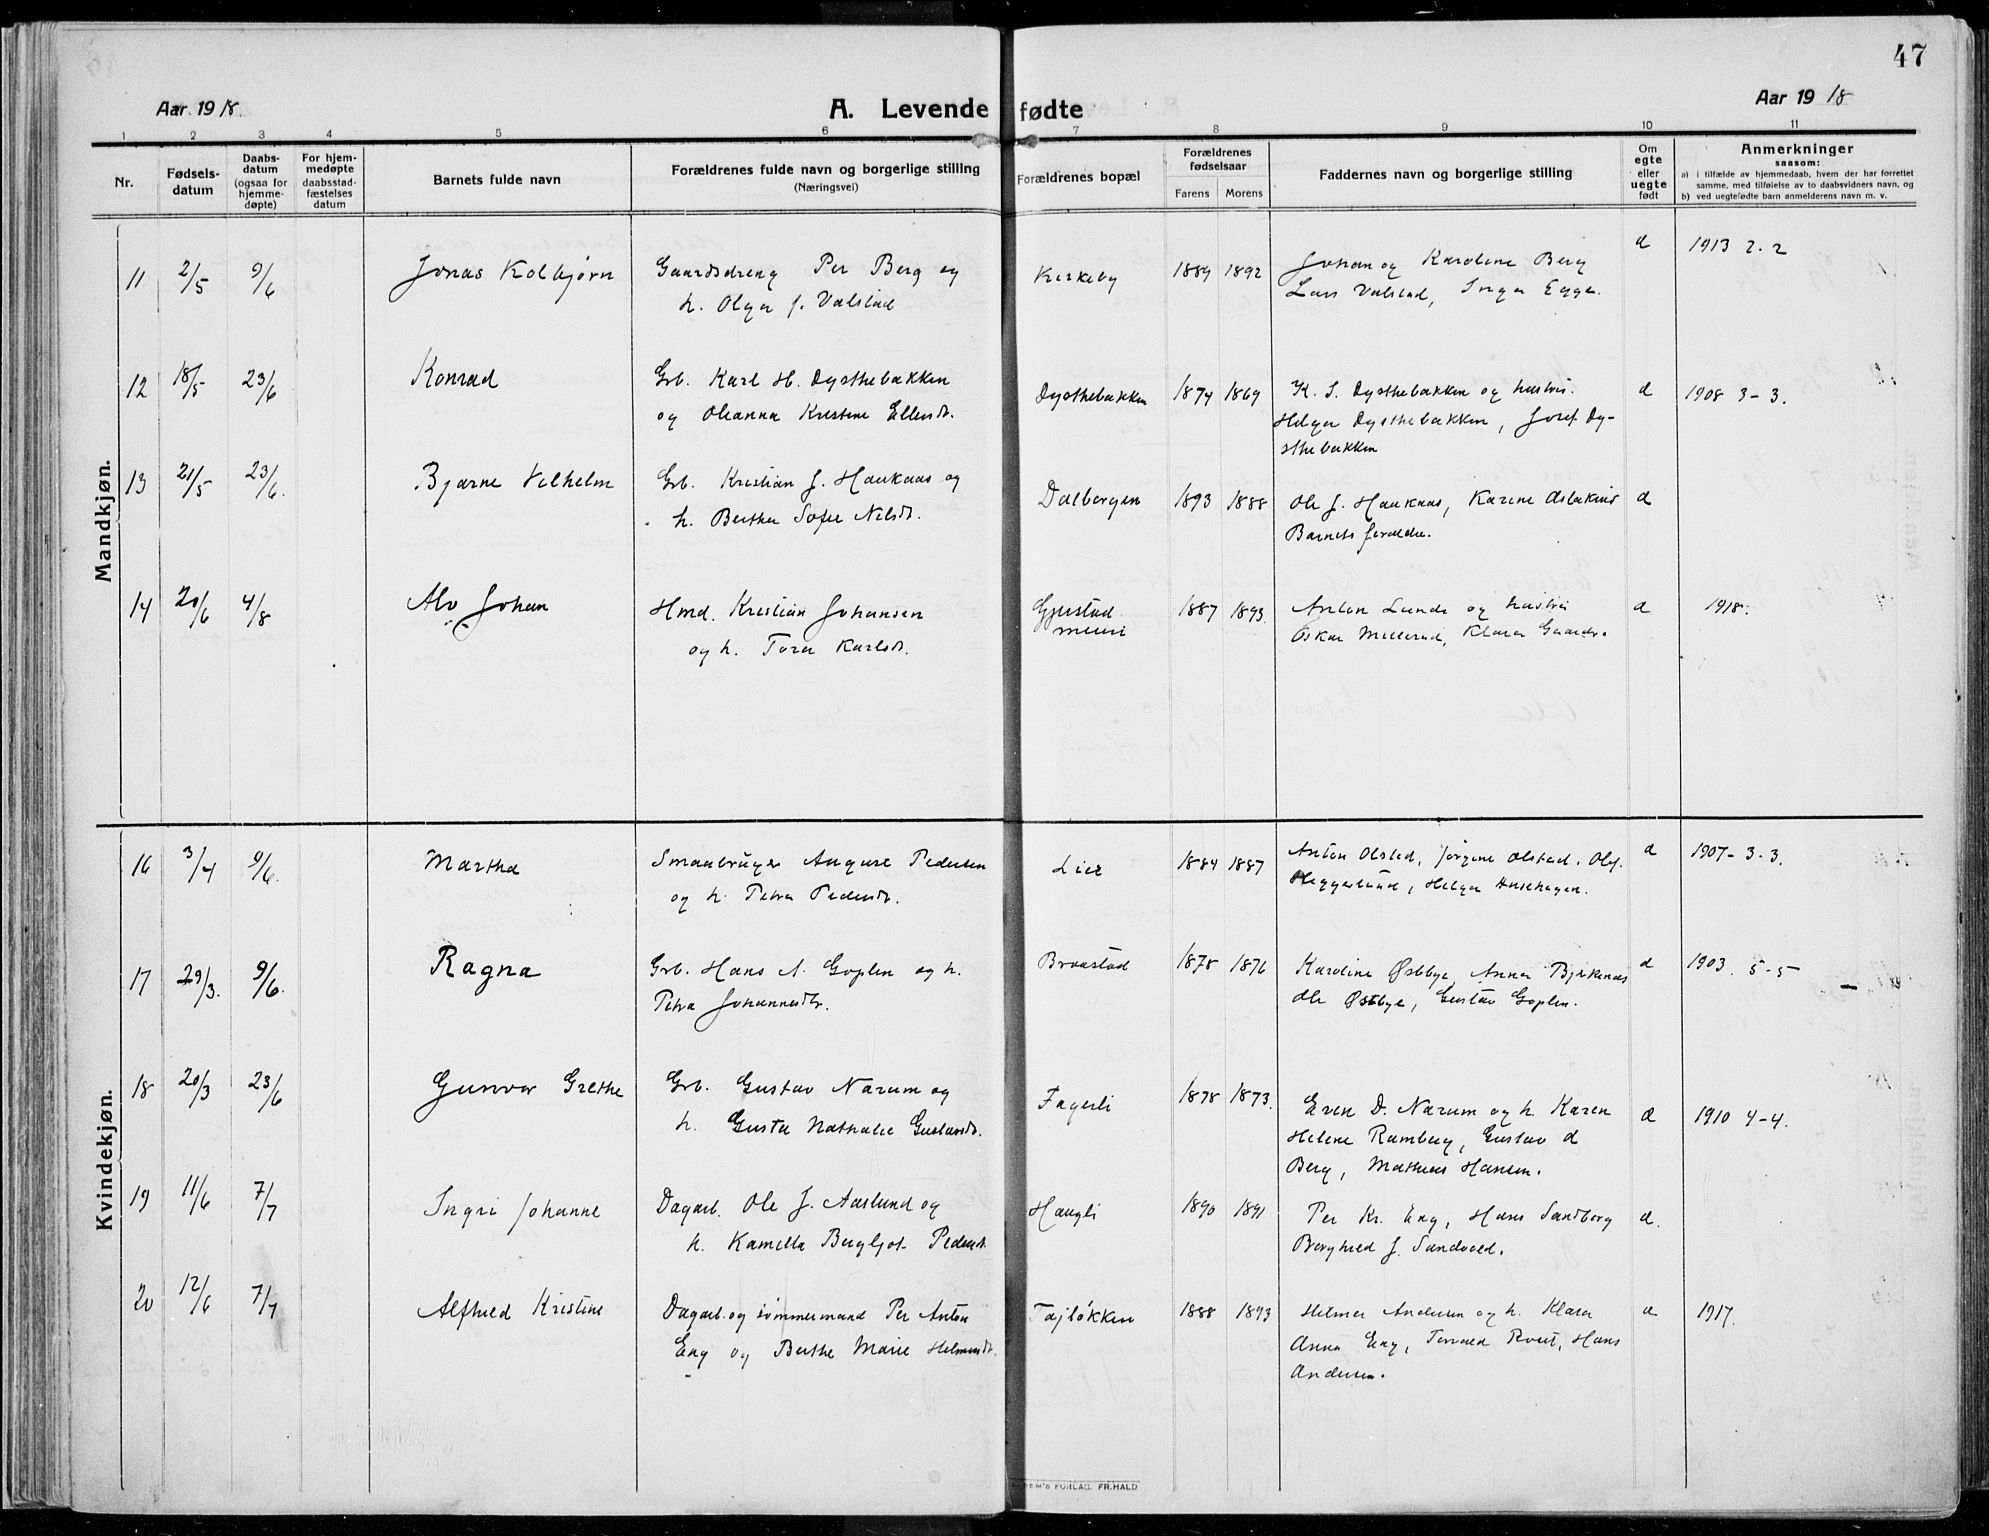 47
Aar 1918. A. Levende fødte Aar 1918
1 2 3 4 5 6 7 8 9 10 11
Nr.
Fødsels-
datum
Daabs-
datum
(ogsaa for
hjemme-
døpte)
For hjem-
medøpte
daabsstad-
fæstelses
datum
Barnets fulde navn
Forældrenes fulde navn og borgerlige stilling
(Næringsvei)
Forældrenes bopæl
Forældrenes
fødselsaar
Farens Morens
Faddernes navn og borgerlige stilling
Om
egte
eller
uegte
født
Anmerkninger
saasom:
a) i tilfælde av hjemmedaab, hvem der har forrettet
samme, med tilføielse av to daabsvidners navn, og
b) ved uegtefødte barn anmelderens navn m. v.
Mandkjøn.
11 2/5 9/6 Jonas Kolbjørn Gaardsdreng Per Berg og Kirkeby 1889 1892 Johan og Karoline Berg d 1913 2-2
h. Olga J. Valstad Lars Valstad, Inga Egge.
12 18/5 23/6 Konrad Grb. Karl H. Dysthebakken Dysthebakken 1874 1869 K. S. Dysthebakken og hustru. d 1908 3-3.
og Oleanna Kristine Ellendt. Helga Dysthebakken, Josef Dy-
sthebakken
13 21/5 23/6. Bjarne Vilhelm Grb. Kristian J. Haukaas og Dalborgen 1893 1888 Ole J. Haukaas, Karine d
h. Berthe Sofie Nilsdt. Barnets forældre.
14 20/6 4/8 Alv Johan Hmd. Kristian Johansen Gjestad 1887 1893. Anton Lunde og hustru d 1918.
og h. Tora Karlsdt. Oskar Millerud, Klara
Kvindekjøn.
16 3/4 9/6. Martha Smaabruger August Pedersen Lier 1884 1887 Anton Olstad, Jørgine Olstad, Olaf d 1907-3-3.
og h. Petra Pedersdt. Heggerlund, Helga Husehagen.
17 29/3. 9/6. Ragna Grb. Hans A. Goplen og h. Braastad 1878 1876 Karoline Østbye, Anna Bjerkenaas d 1903. 5-5
Petra Johannesdtr. Ole Østbye, Gustav Goplen.
18 20/3 23/6 Gunvor Grethe Grb. Gustav Narum og Fagerli 1878 1873. Even D. Narum og h. Karen d 1910 4-4.
h. Gusta Nathalie Gustavsdt. Helene Ramberg, Gustav d
Berg, Mathias Hansen.
19 11/6 7/7 Ingri Johanne Dagarb. Ole J. Aaslund og Haugli 1890 1891 Per Kr. Eng, Hans Sandborg d.
h. Kamilla Bergljot Pedersdt. Borghild J. Sandvold.
20 12/6 7/7 Alfhild Kristine Dagarb. og tømmermand Per Anton Tajløkken 1888 1893 Helmer Andersen og h. Klara d 1917.
Eng og Berthe Marie Helmersdt. Anna Eng, Torvald Hans
Andersen.
FORLAG. FR. HALD